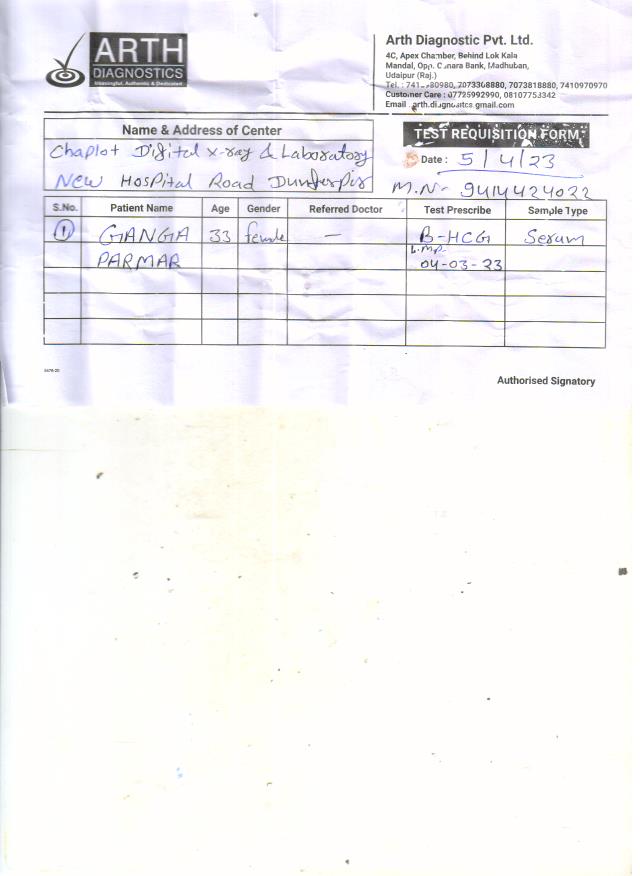 ARTH
DIAGNOSTICS
Meaningful, Authentic & Dedicated
Arth Diagnostic Pvt. Ltd.
4C, Apex Chamber, Behind Lok Kala
Mandal, Opp. Canara Bank, Madhuban,
Udaipur (Raj.)
Tel. : 980, 7073308880, 7073818880, 7410970970
Customer Care : 07725992990, 08107753342
Email : arth.diagnositcs.gmail.com
Name & Address of Center
Chaplot Digital x-ray & Laboratory
New Hospital Road
TEST REQUISITION FORM
Date : 5/4/23
M.N- 9414424022
S.No. Patient Name Age Gender Referred Doctor Test Prescribe Sample Type
1 GANGA 33 female — B-HCG Serum
PARMAR L.M.P. 04-03-23
Authorised Signatory